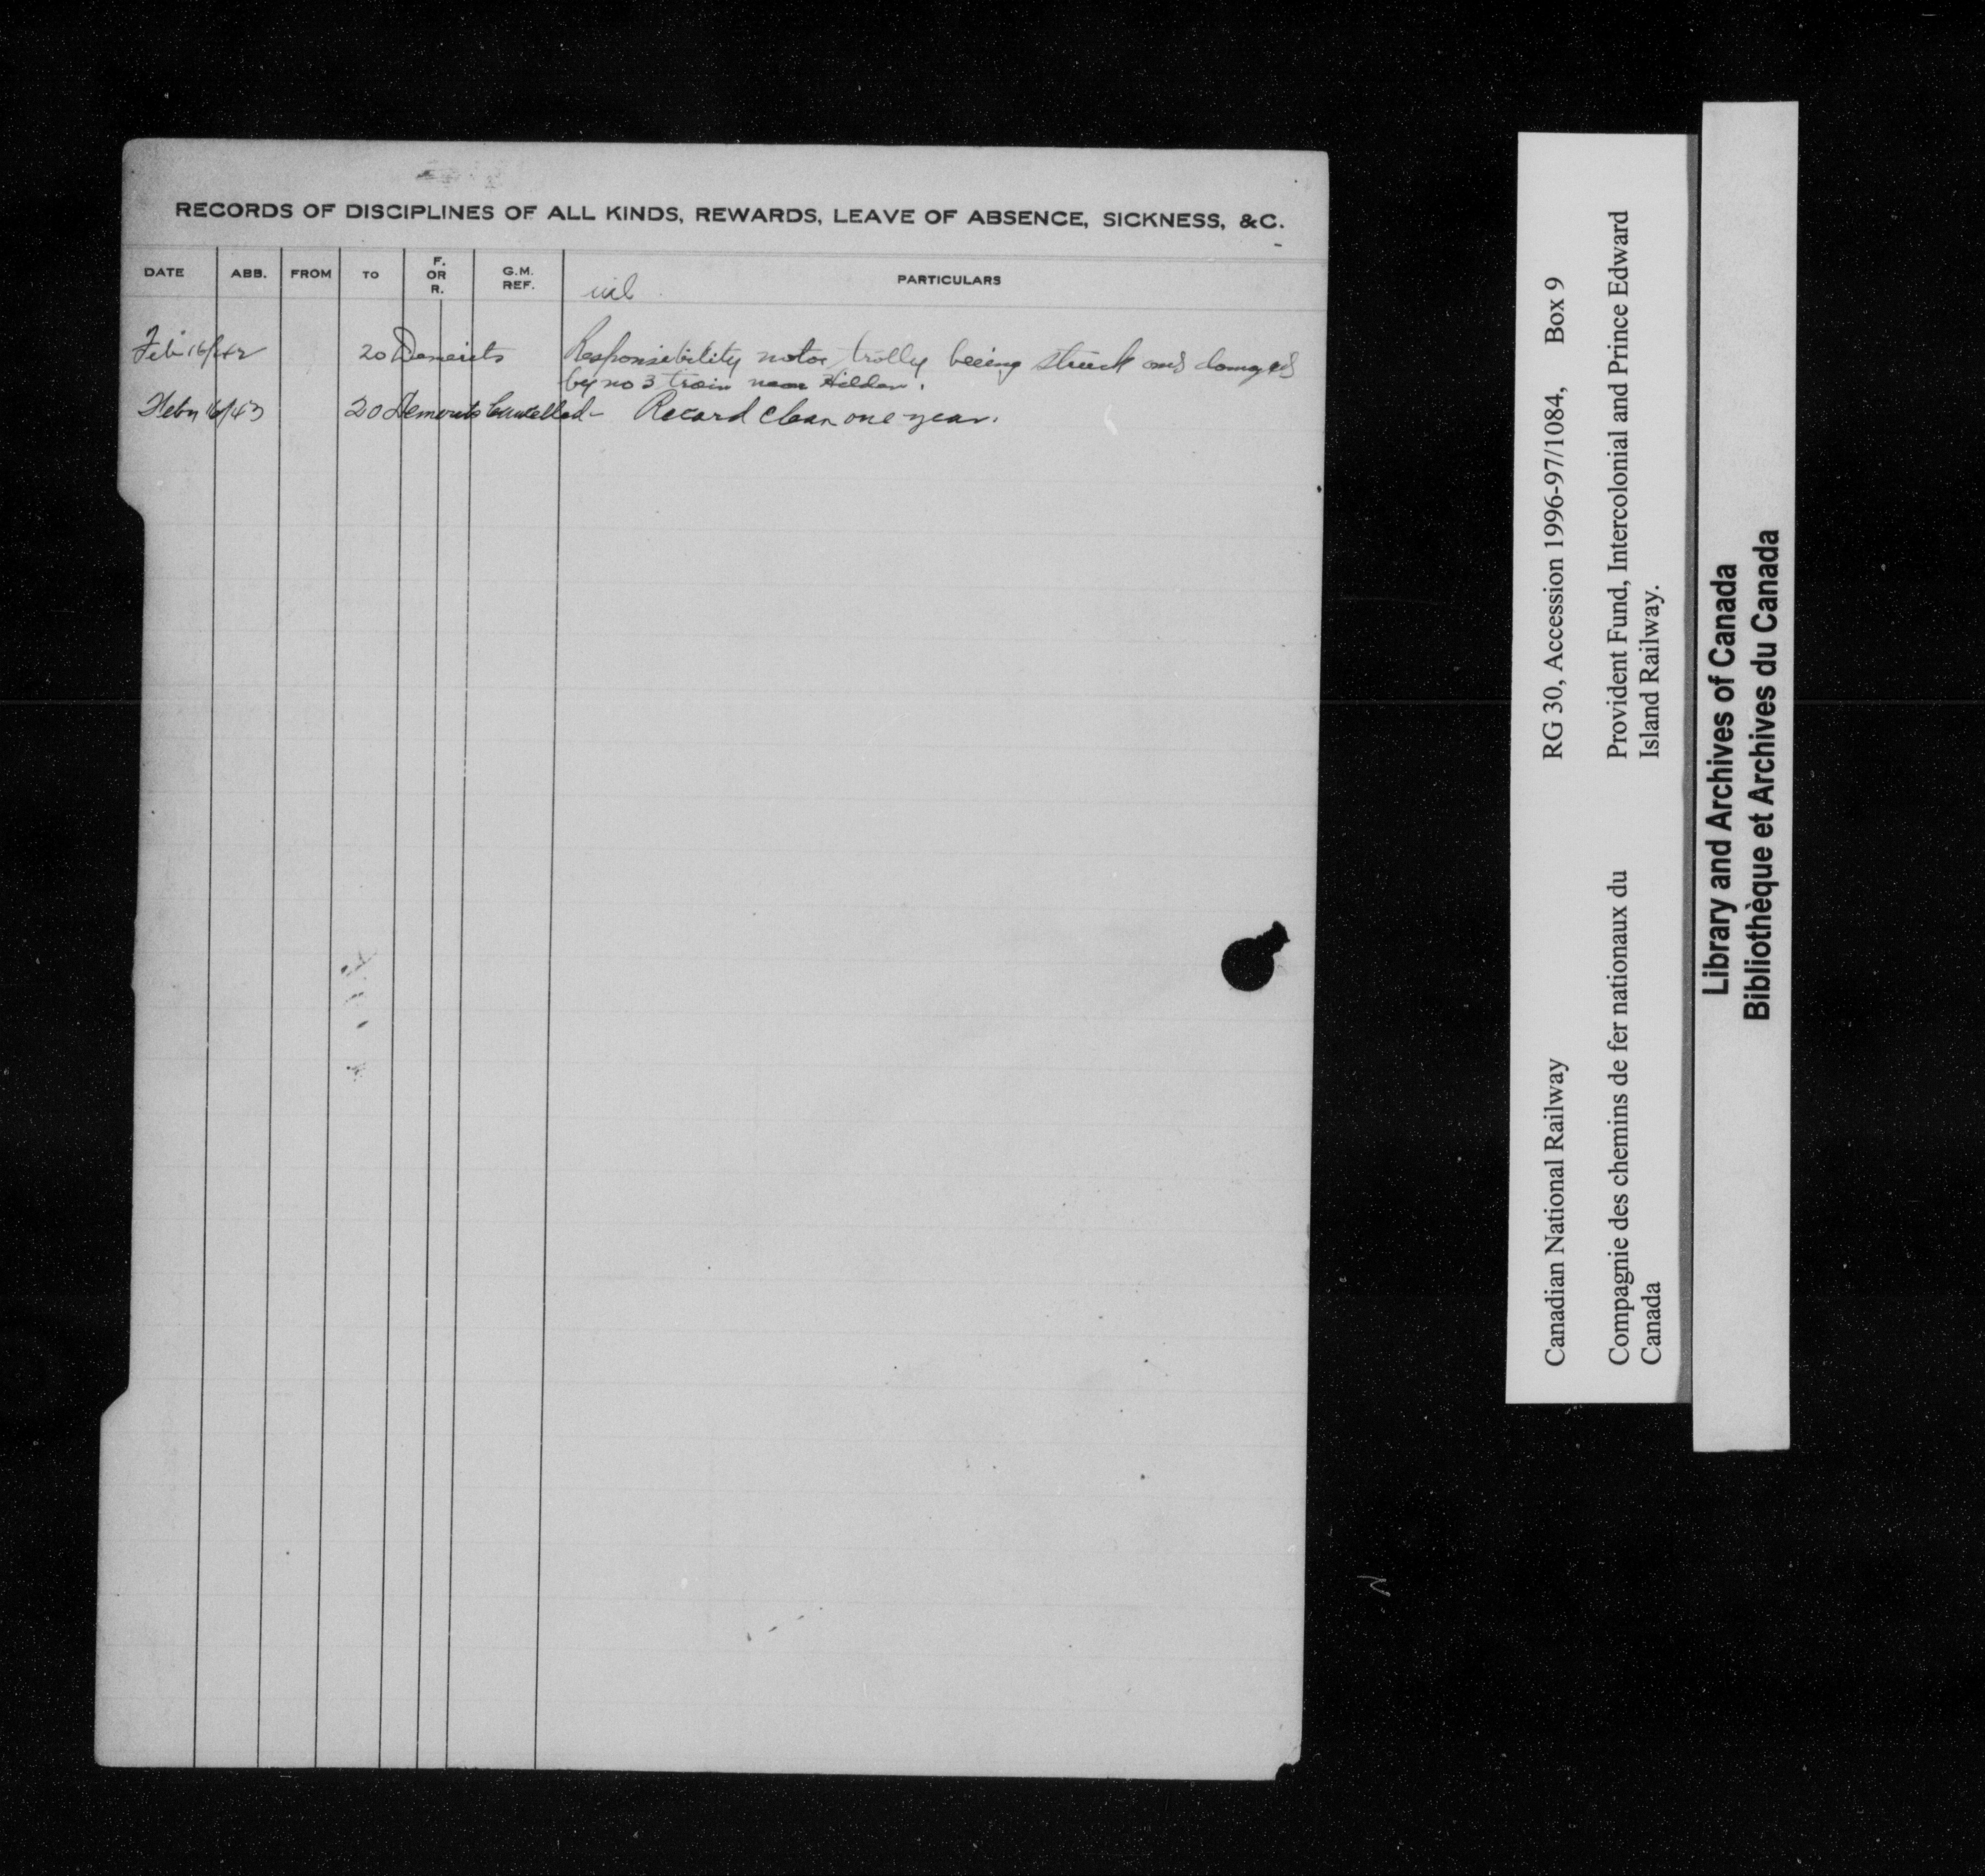 RECORDS OF DISCIPLINES OF ALL KINDS, REWARDS, LEAVE OF ABSENCE, SICKNESS, &C.
DATE ABB. FROM TO F. OR R. G.M. REF. PARTICULARS
Feb 16/42 20 Demerits Responsibility motor trolly beeing struck and damaged
by no 3 train near Hilden.
Feby 16/43 20 Demerits Cancelled - Record clear one year.
RG 30, Accession 1996-97/1084, Box 9
Provident Fund, Intercolonial and Prince Edward
Island Railway.
Canadian National Railway
Compagnie des chemins de fer nationaux du
Canada
Library and Archives of Canada
Bibliothèque et Archives du Canada